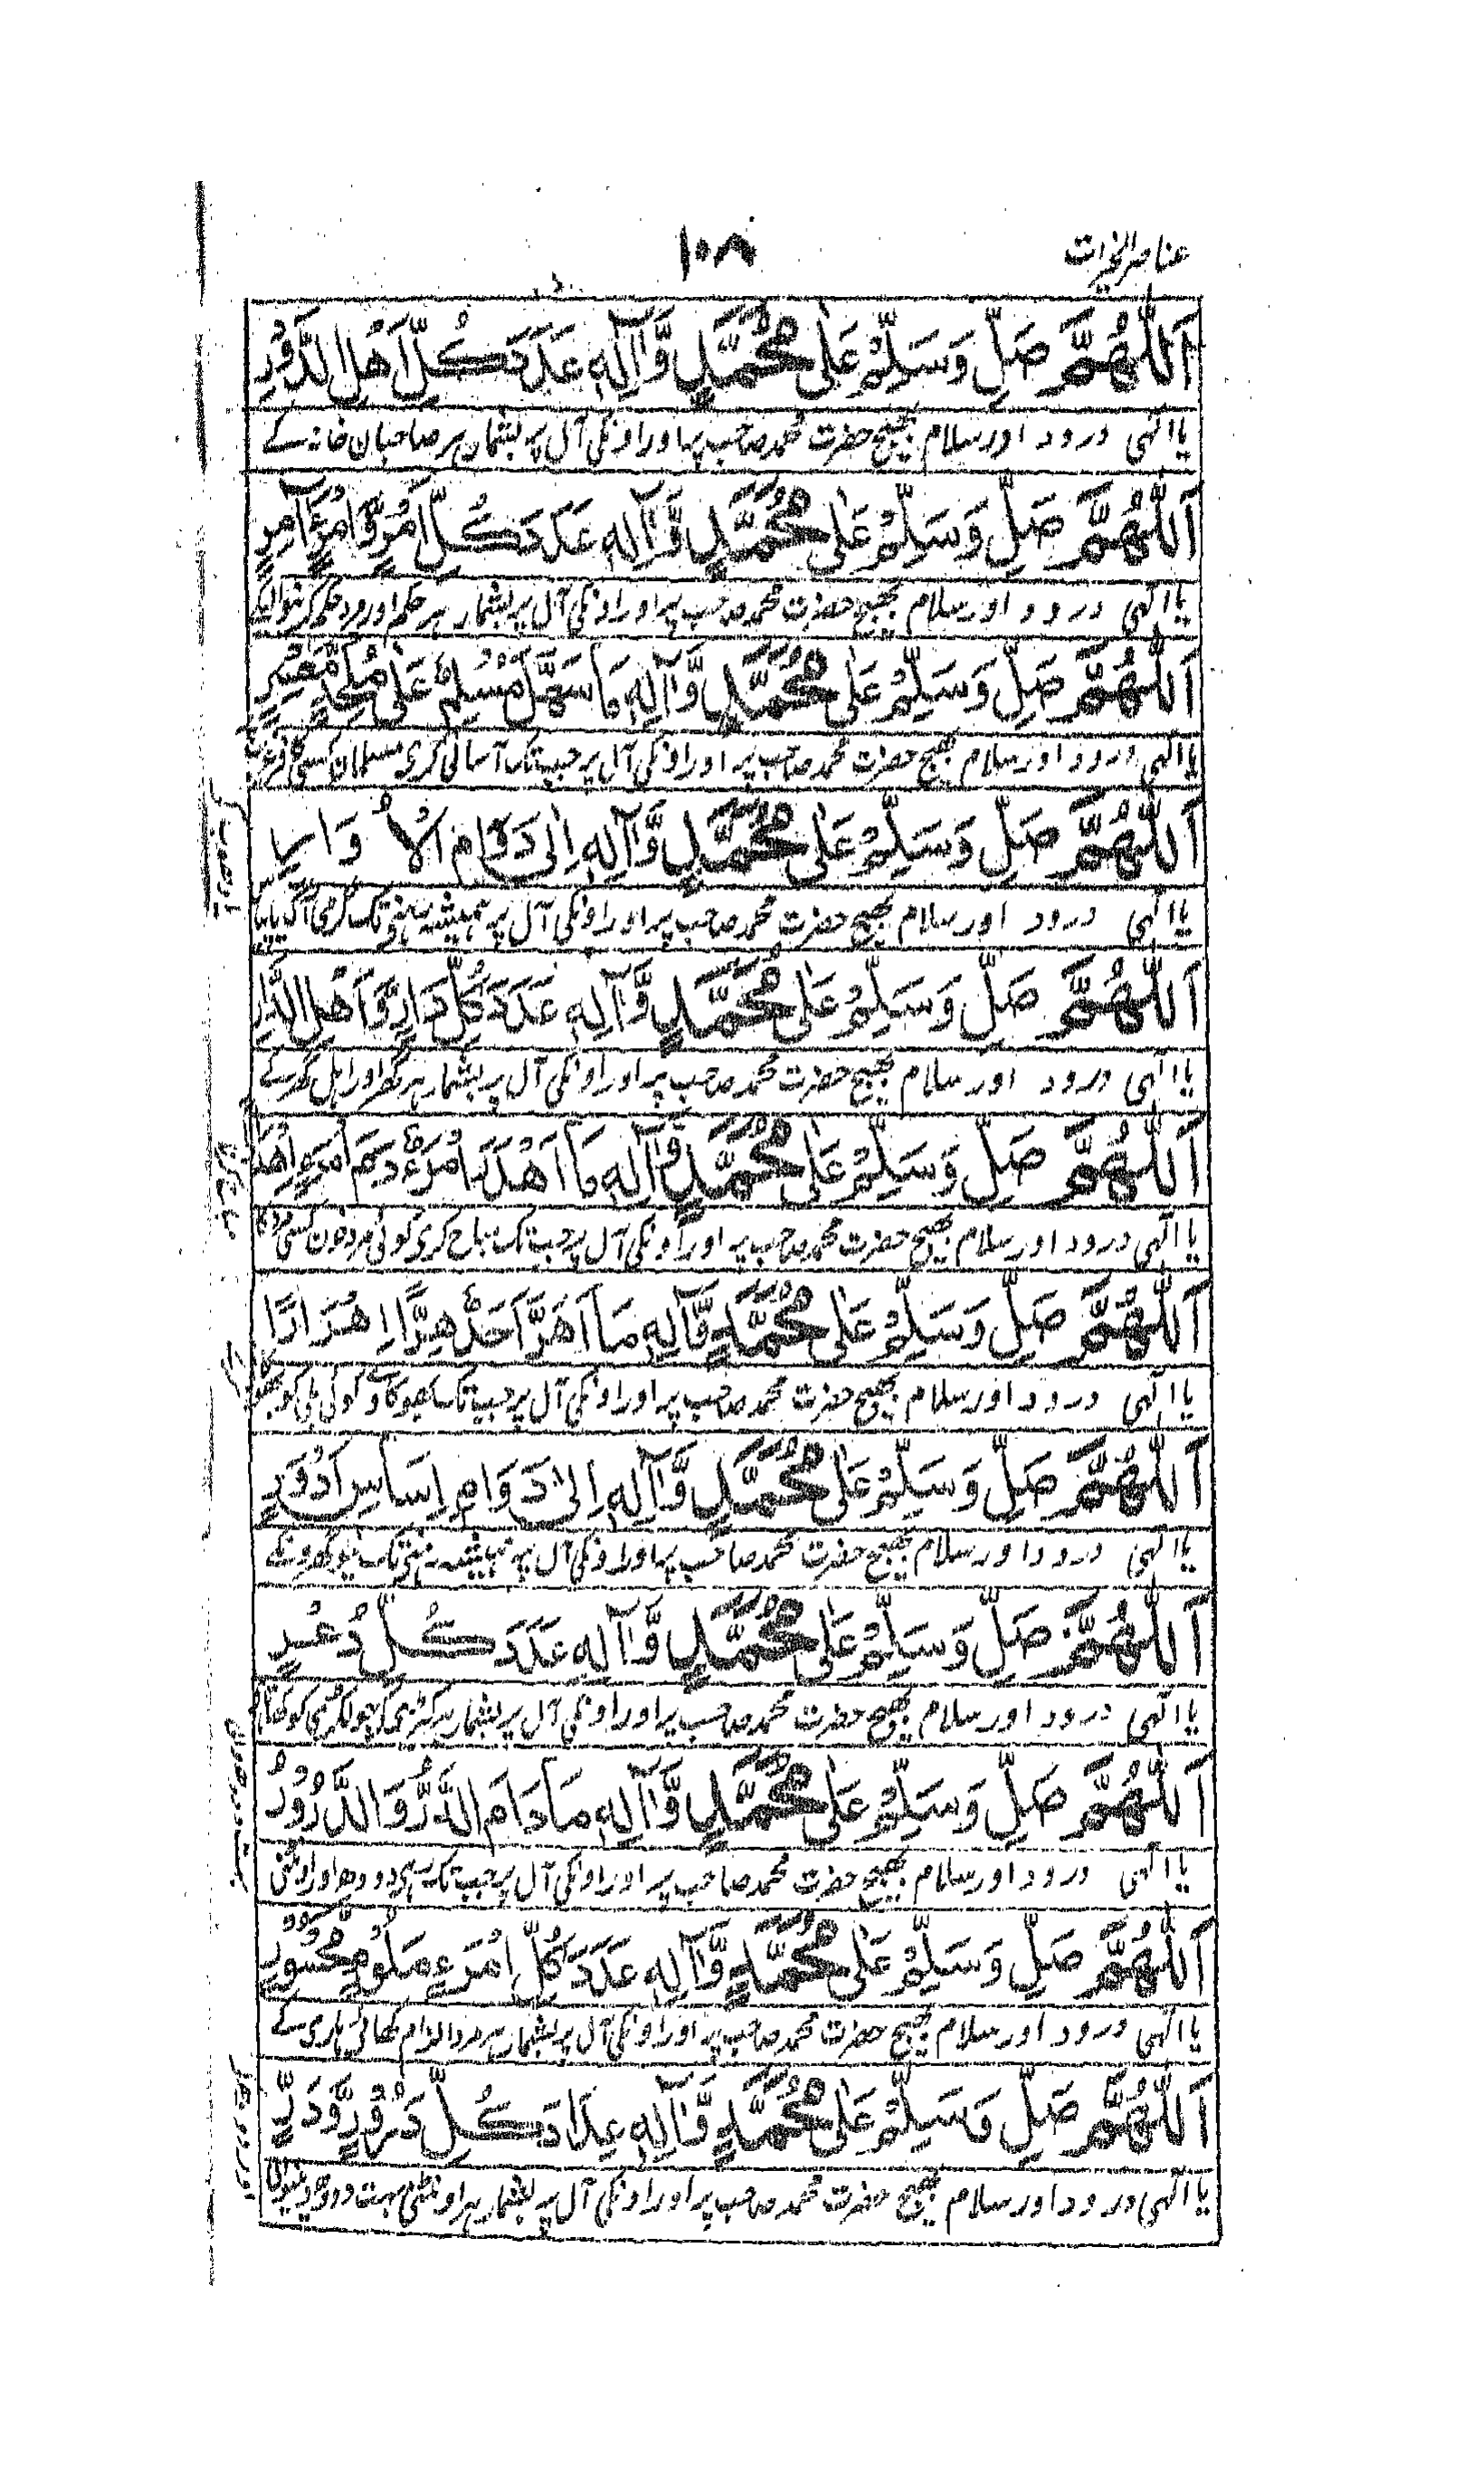 عناصر الخیرات
۱۰۸
اَللّٰهُمَّ صَلِّ وَسَلِّمْ عَلٰی مُحَمَّدٍ وَّاٰلِهٖ عَدَدَ كُلِّ اَهْلِ الدُّوْرِ
یا الٰہی درود اور سلام بھیج حضرت محمد صاحب پہ اور اونکی آل پہ بشمار ہر صاحبان خانہ کے
اَللّٰهُمَّ صَلِّ وَسَلِّمْ عَلٰی مُحَمَّدٍ وَّاٰلِهٖ عَدَدَ كُلِّ اَمْرٍ وَّامْرَءٍ اٰمِرٍ
یا الٰہی درود اور سلام بھیج حضرت محمد صاحب پر اور اونکی آل پر بشمار ہر حکم اور مرد حکم کرنیوالیکے
اَللّٰهُمَّ صَلِّ وَسَلِّمْ عَلٰی مُحَمَّدٍ وَّاٰلِهٖ مَا سَهَّلَ مُسْلِمٌ عَلٰی مُلْحِدٍ مُّعْسِرٍ
یا الٰہی درود اور سلام بھیج حضرت محمد صاحب پر اور اونکی آل پر جب تک آسانی کری مسلمان کسی کافر
اَللّٰهُمَّ صَلِّ وَسَلِّمْ عَلٰی مُحَمَّدٍ وَّاٰلِهٖ اِلٰی دَوَامِ الْاُوَارِ
یا الٰہی درود اور سلام بھیج حضرت محمد صاحب پر اور اونکی آل پر ہمیشہ رہنی تک گرمی آگ
اَللّٰهُمَّ صَلِّ وَسَلِّمْ عَلٰی مُحَمَّدٍ وَّاٰلِهٖ عَدَدَ كُلِّ دَارٍ وَّاَهْلِ الدَّارِ
یا الٰہی درود اور سلام بھیج حضرت محمد صاحب پر اور اونکی آل پر بشمار ہر گھر اور اہل گھر کے
اَللّٰهُمَّ صَلِّ وَسَلِّمْ عَلٰی مُحَمَّدٍ وَّاٰلِهٖ مَا اَهْدَرَ امْرَءٌ دَمَ امْرَءٍ
یا الٰہی درود اور سلام بھیج حضرت محمد صاحب پر اور اونکی آل پر جب تک مباح کری کوئی مرد خون کسی مرد کا
اَللّٰهُمَّ صَلِّ وَسَلِّمْ عَلٰی مُحَمَّدٍ وَّاٰلِهٖ مَا اَهَرَّ اَحَدٌ هِرًّا اِهْرَارًا
یا الٰہی درود اور سلام بھیج حضرت محمد صاحب پر اور اونکی آل پر جب تک بھوکاوے کوئی بلی کو
اَللّٰهُمَّ صَلِّ وَسَلِّمْ عَلٰی مُحَمَّدٍ وَّاٰلِهٖ اِلٰی دَوَامِ اِسَاسِ اَدْوُرٍ
یا الٰہی درود اور سلام بھیج حضرت محمد صاحب پہ اور اونکی آل پہ ہمیشہ رہنی تک نیو گھرونکے
اَللّٰهُمَّ صَلِّ وَسَلِّمْ عَلٰی مُحَمَّدٍ وَّاٰلِهٖ عَدَدَ كُلِّ دُعْرٍ
یا الٰہی درود اور سلام بھیج حضرت محمد صاحب پر اور اونکی آل پر بشمار ہر کیڑیکی کہ جو لکڑی کو کھاتا ہے
اَللّٰهُمَّ صَلِّ وَسَلِّمْ عَلٰی مُحَمَّدٍ وَّاٰلِهٖ مَا دَامَ الدَّرُّ وَالدَّرُوْرُ
یا الٰہی درود اور سلام بھیج حضرت محمد صاحب پر اور اونکی آل پر جب تک رہی دودھ اور اونٹنی
اَللّٰهُمَّ صَلِّ وَسَلِّمْ عَلٰی مُحَمَّدٍ وَّاٰلِهٖ عَدَدَ كُلِّ امْرَءٍ مَلُوْمٍ مَّحْسُوْرٍ
یا الٰہی درود اور سلام بھیج حضرت محمد صاحب پر اور اونکی آل پر بشمار ہر مرد الزام کھائی ہاری کے
اَللّٰهُمَّ صَلِّ وَسَلِّمْ عَلٰی مُحَمَّدٍ وَّاٰلِهٖ عِدَادَ كُلِّ دَرُوْرٍ وَّدَرٍّ
یا الٰہی درود اور سلام بھیج حضرت محمد صاحب پر اور اونکی آل پر بشمار ہر اونٹنی بہت دودھ